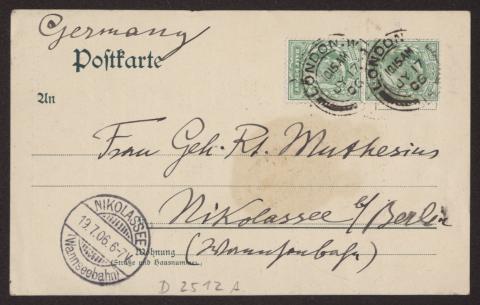 Germany
Postkarte
LONDON. W
10.15 AM
JY 17
06
LONDON
10.15 AM
JY 17
06
An
Frau Geh. Rt. Muthesius
Nikolassee b/Berlin
(Wannseebahn)
NIKOLASSEE
19.7.06.6-7V.
(Wannseebahn)
Wohnung
(Straße und Hausnummer)
D 2512 A